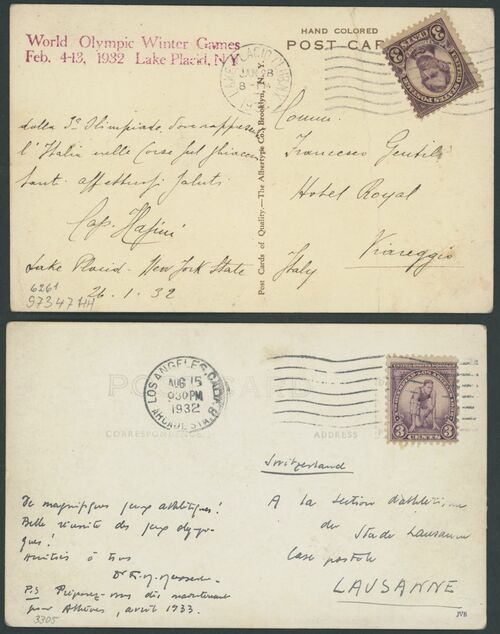 World Olympic Winter Games
Feb. 4-13, 1932 Lake Placid, N.Y
HAND COLORED
POST CARD
LAKE PLACID CLUB N.Y.
JAN 28
8
UNITED STATES POSTAGE
3 CENTS 3
dalla Olimpiade, dove
l'Italia nelle Corse sul ghiaccio
tanti affettuosi saluti
Cap.
Lake Placid - New York State
26.1.32
6261
97347HH
Post Cards of Quality.—The Albertype Co., Brooklyn, N.Y.
Francesco Gentili
Hotel Royal
Viareggio
Italy
POST CARD
LOS ANGELES, CALIF.
AUG 15
930 PM
1932
ARCADE STA.
CORRESPONDENCE
ADDRESS
3 CENTS 3
Switzerland
De magnifiques jeux athlétiques!
Belle réussite des jeux olympi-
ques!
Amitiés à tous
Dr F. M.
P.S Préparez-vous dès maintenant
pour Athènes, avril 1933.
3305
A la section d'athlétisme
du Stade Lausanne
Case postale
LAUSANNE
JVB